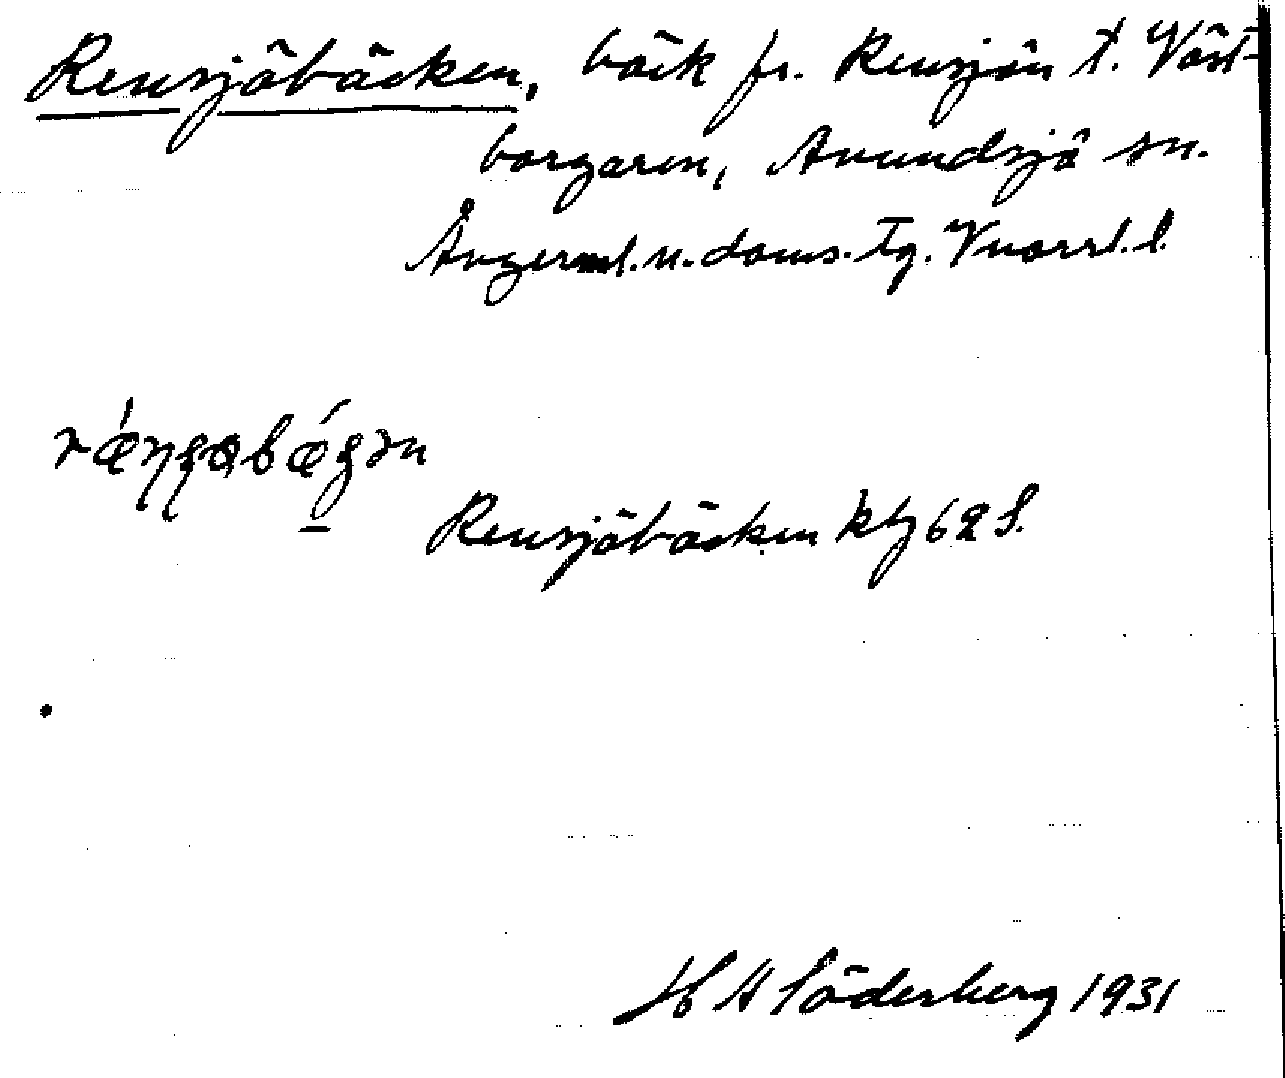 Rensjöbäcken, bäck fr. Rensjön t. Väst-
borgaren, Anundsjö sn.
Ångerml. n. doms. Tg. Vnorrl. l.
Rensjöbäcken kbg 62 S.
H A Söderberg 1931